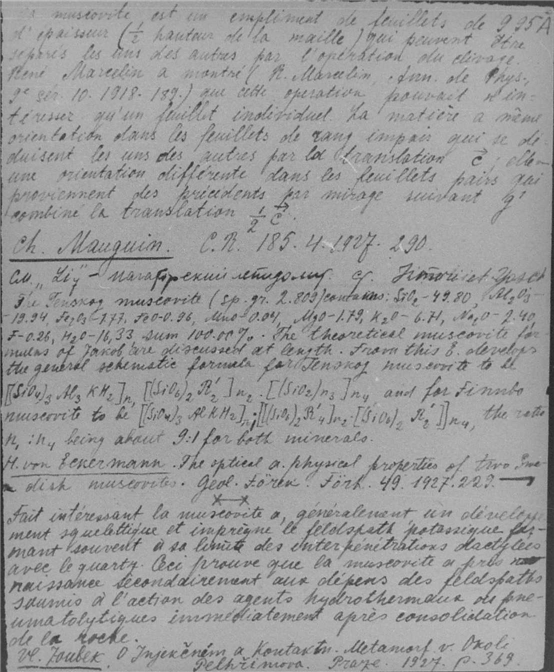 La muscovite est un empliment de feuillets de 9,95 A
d'épaisseur (1/2 hauteur de la maille) qui peuvent être
separés les uns des autres par l'opération du clivage.
René Marcelin a montré (R. Marcelin. Ann. de Phys.,
9e sér. 10. 1918. 189.) que cette operation pouvait n'in-
téresser qu'un feuillet individuel. La matière a même
orientation dans les feuillets de rang impair qui se dé
duisent les uns des autres par la translation c, elle a
une orientation différente dans les feuillets pairs qui
proviennent des précedents par mirage suivant g'
combiné la translation 1/2 c.
Ch. Mauguin. C.R. 185. 4. 1927. 290.
См. „Li" –
The Tenskog muscovite (sp. gr. 2.809) contains: SiO2-49.80, Al2O3-
-19.94, Fe2O3-1.77, FeO-0.96, MnO-0.04, MgO-1.79, K2O-6.71, Na2O-2.40,
F-0.26, H2O-16,33 sum 100.00%. The theoretical muscovite for
mulas of Jakob are discussed at length. From this E. develops
the general schematic formula for Tenskog muscovite to be
[[SiO4)3 Al3 KH2]n1 [(SiO6)2 R'2]n2 · [(SiO2)n3]n4 and for Finnbo
muscovite to be [(SiO4)3 Al KH2]n1 [[(SiO6)2 R''4]n2 · [(SiO6)2 R''2]]n4, the ratio
n1 : n4 being about 9:1 for both minerals.
H. von Eckermann. The optical a. physical properties of two Swe-
dish muscovites. Geol. Fören. Förh. 49. 1927. 229.
Fait intéressant la muscovite a, généralement un dévelop
ment squelettique et impregne le feldspath potassique for-
mant souvent à sa limite des interpénétrations dactylées
avec le quartz. Ceci prouve que la muscovite a pris
naissance secondairement aux dépens des feldspaths
soumis à l'action des agents hydrothermaux ou pne-
umatolytiques immédiatement après consolidation
de la roche.
Vl. Zoubek. O Injekčném a kontaktn. Metamorf. v. Okolí
Pelhřimova. Praze. 1927. p. 369.